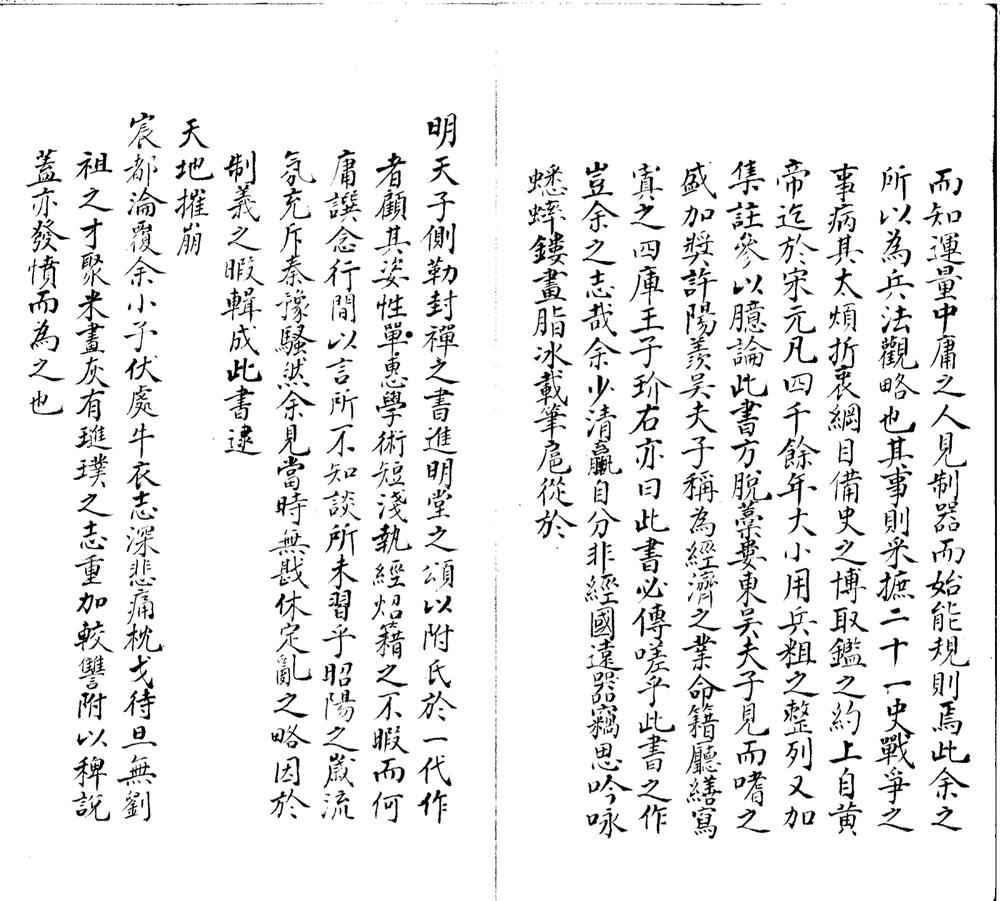 而知運量中庸之人見制器而始能規則焉此余之
所以為兵法觀略也其事則采摭二十一史戰爭之
事病其太煩折衷綱目備史之博取鑑之約上自黃
帝迄於宋元凡四千餘年大小用兵粗之整列又加
集註參以臆論此書方脫藁婁東吳夫子見而嗜之
盛加獎許陽羨吳夫子稱為經濟之業命籍廳繕寫
寘之四庫王子玠右亦曰此書必傳嗟乎此書之作
豈余之志哉余少清羸自分非經國遠器竊思吟咏
蟋蟀鏤畫脂冰載筆扈從於
明天子側勒封禪之書進明堂之頌以附氏於一代作
者顧其姿性單惠學術短淺執經炤籍之不暇而何
庸譔念行間以言所不知談所未習乎昭陽之嵗流
氛充斥秦豫騷然余見當時無戡休定亂之略因於
制義之暇輯成此書逮
天地摧崩
宸都淪覆余小子伏處牛衣志深悲痛枕戈待旦無劉
祖之才聚米畫灰有璡璞之志重加較讐附以稗說
蓋亦發憤而為之也